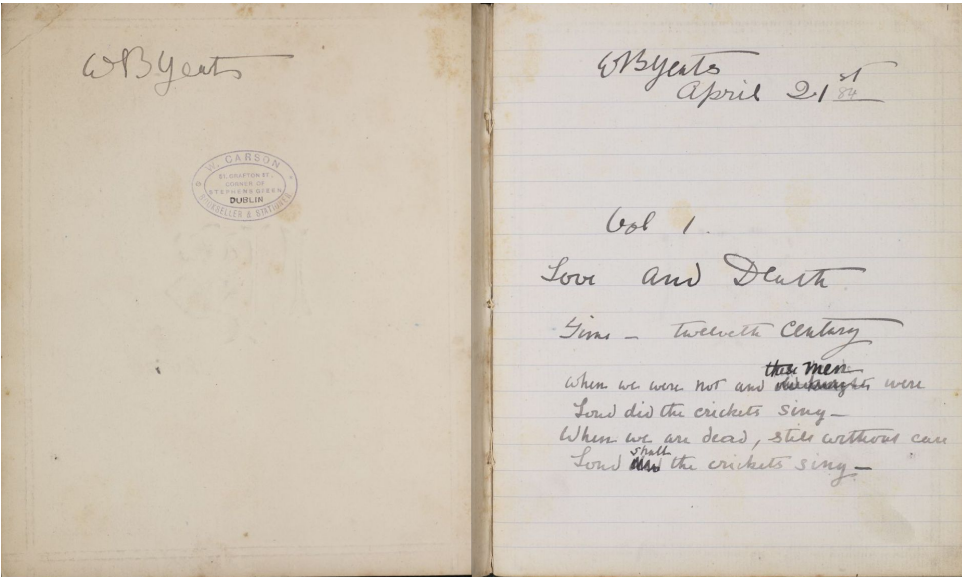 WBYeats
W. CARSON
51, GRAFTON ST.
CORNER OF
STEPHENS GREEN
DUBLIN
BOOKSELLER & STATIONER
WBYeats
April 21st
84
Vol 1.
Love and Death
Time – twelveth Century
these men
When we were not and were
Loud did the crickets sing –
When we are dead, still without care
shall
Loud the crickets sing –